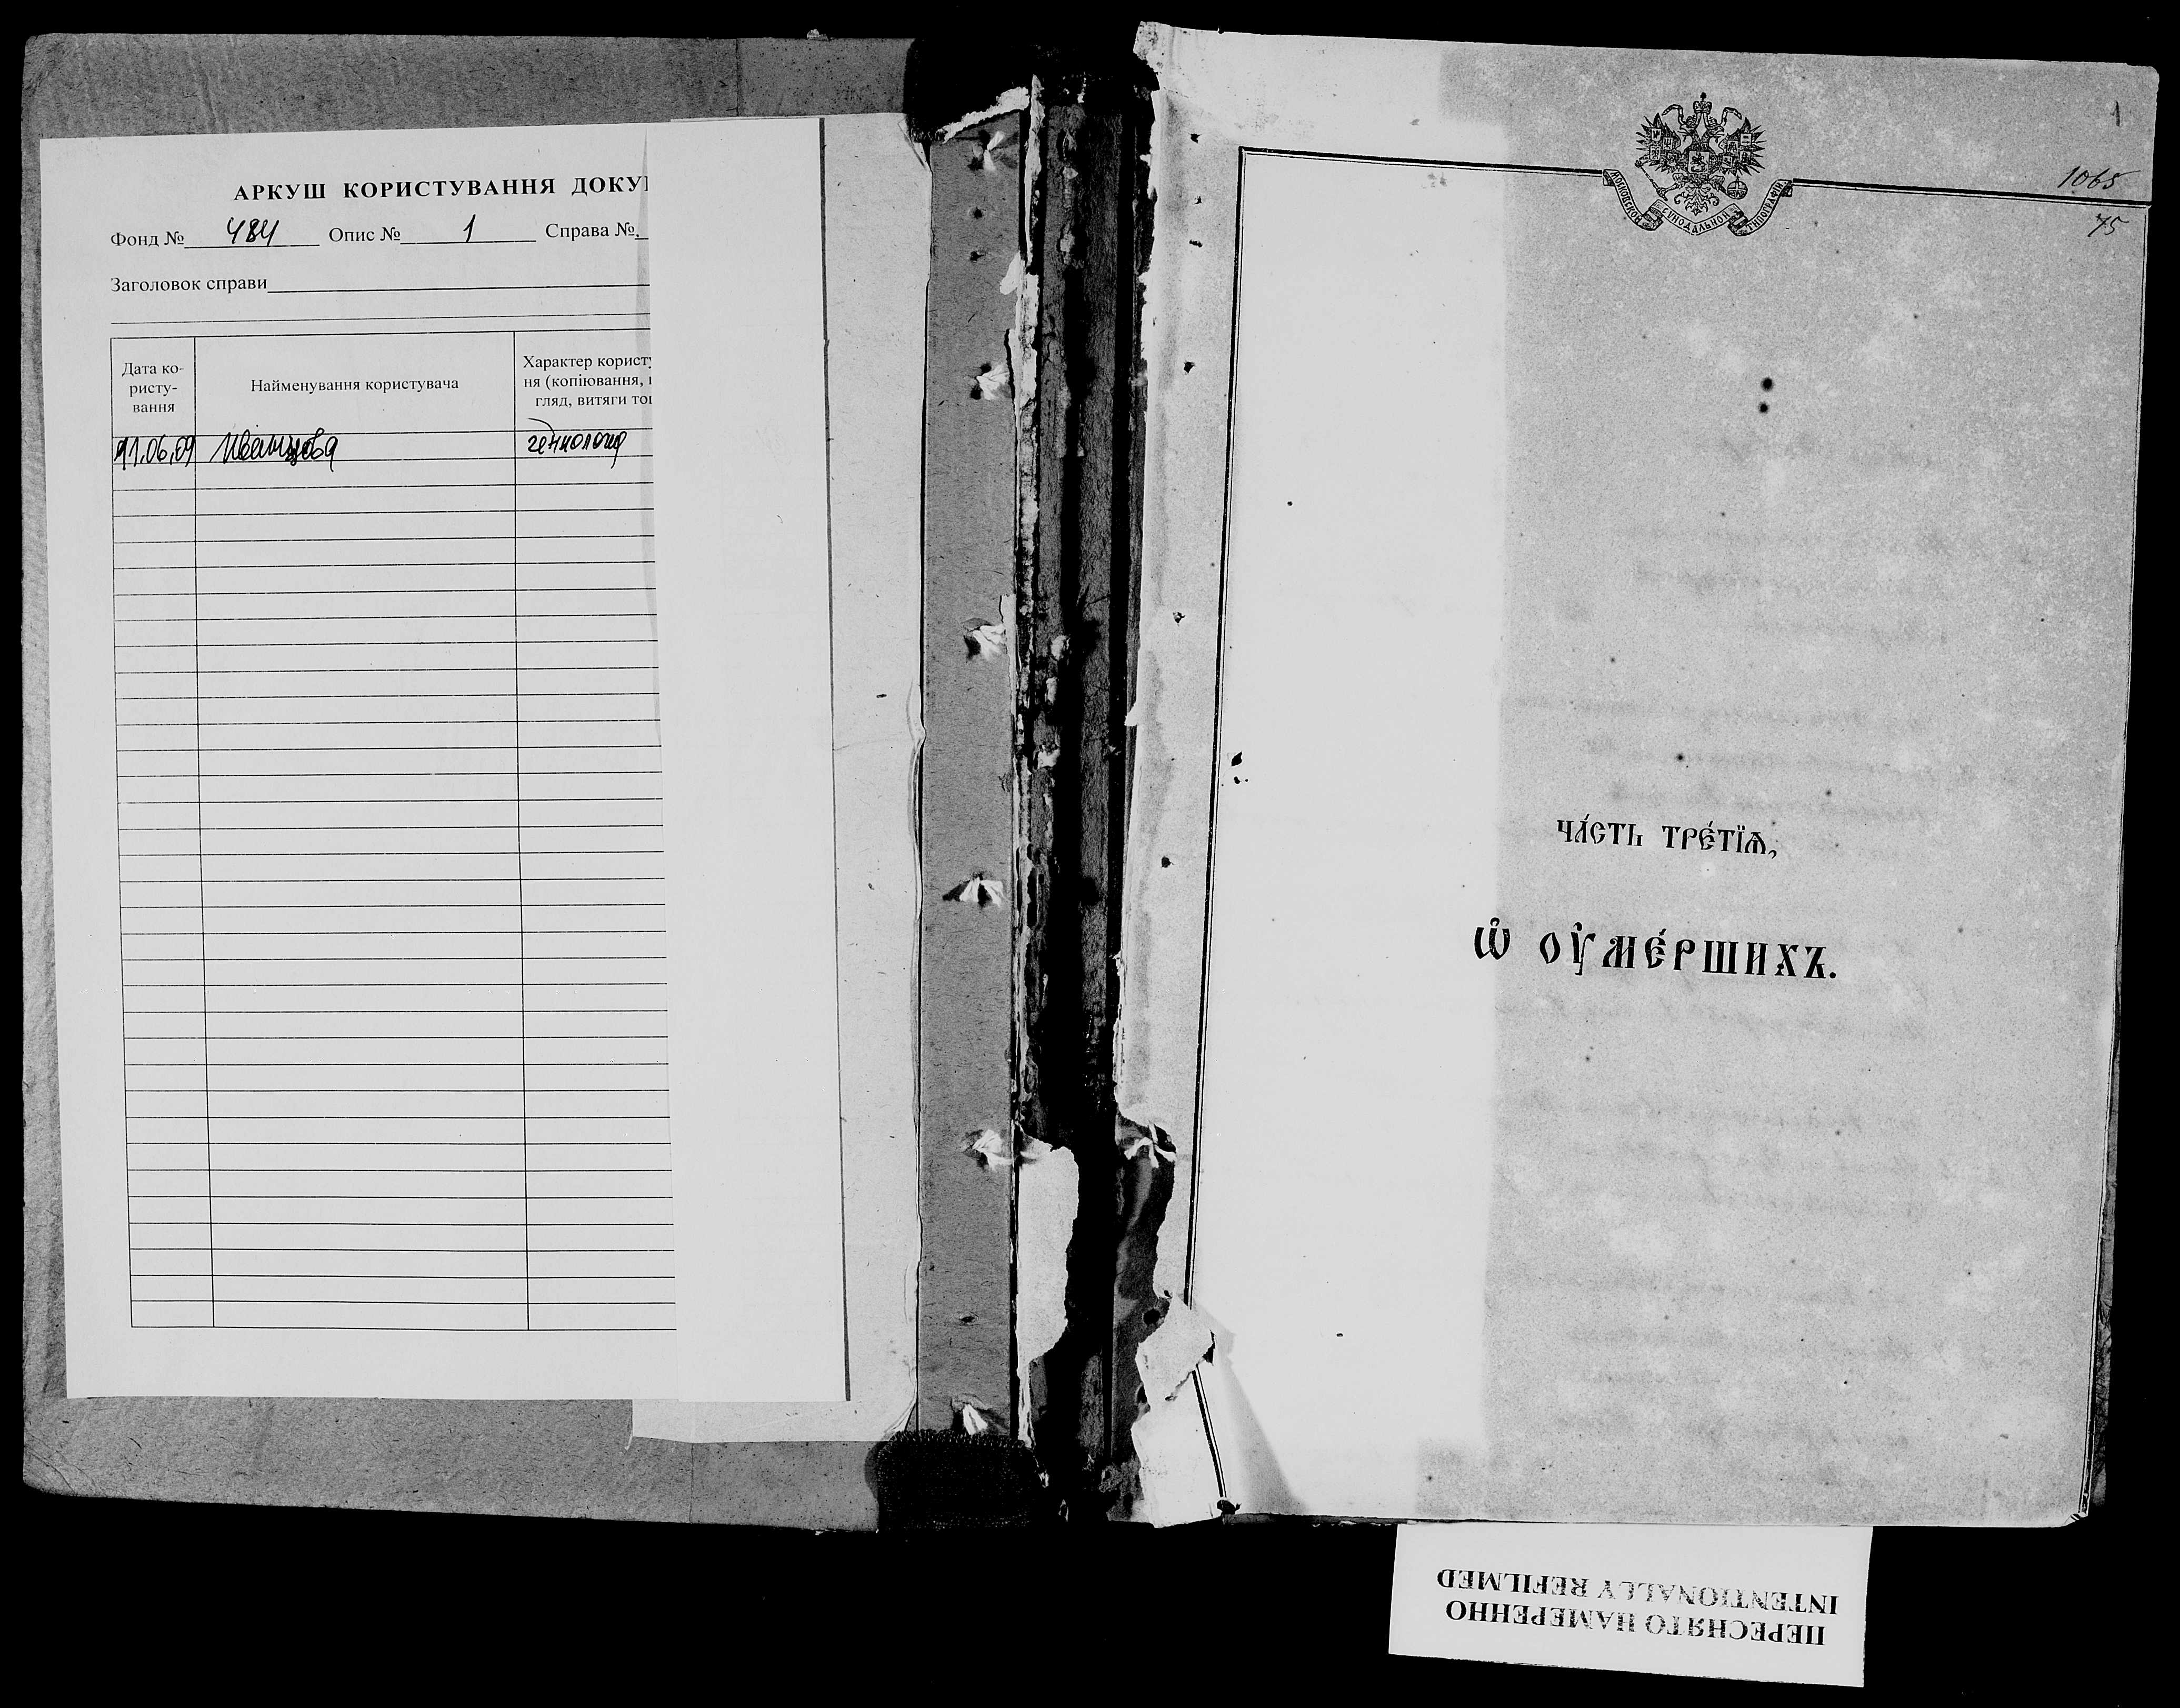 АРКУШ КОРИСТУВАННЯ ДОКУ
Фонд № 484 Опис № 1 Справа №
Заголовок справи
Дата ко-
ристу-
вання
Найменування користувача
Характер корист
ня (копіювання,
гляд, витяги то
11.06.09
1
1065
75
МОСКОВСКОЙ СѴНОДАЛЬНОЙ ТИПОГРАФІИ
ЧА́СТЬ ТРЕ́ТЇѦ,
Ѡ҆ ОУ҆МЕ́РШИХЪ.
ПЕРЕСНЯТО НАМЕРЕННО
INTENTIONALLY REFILMED